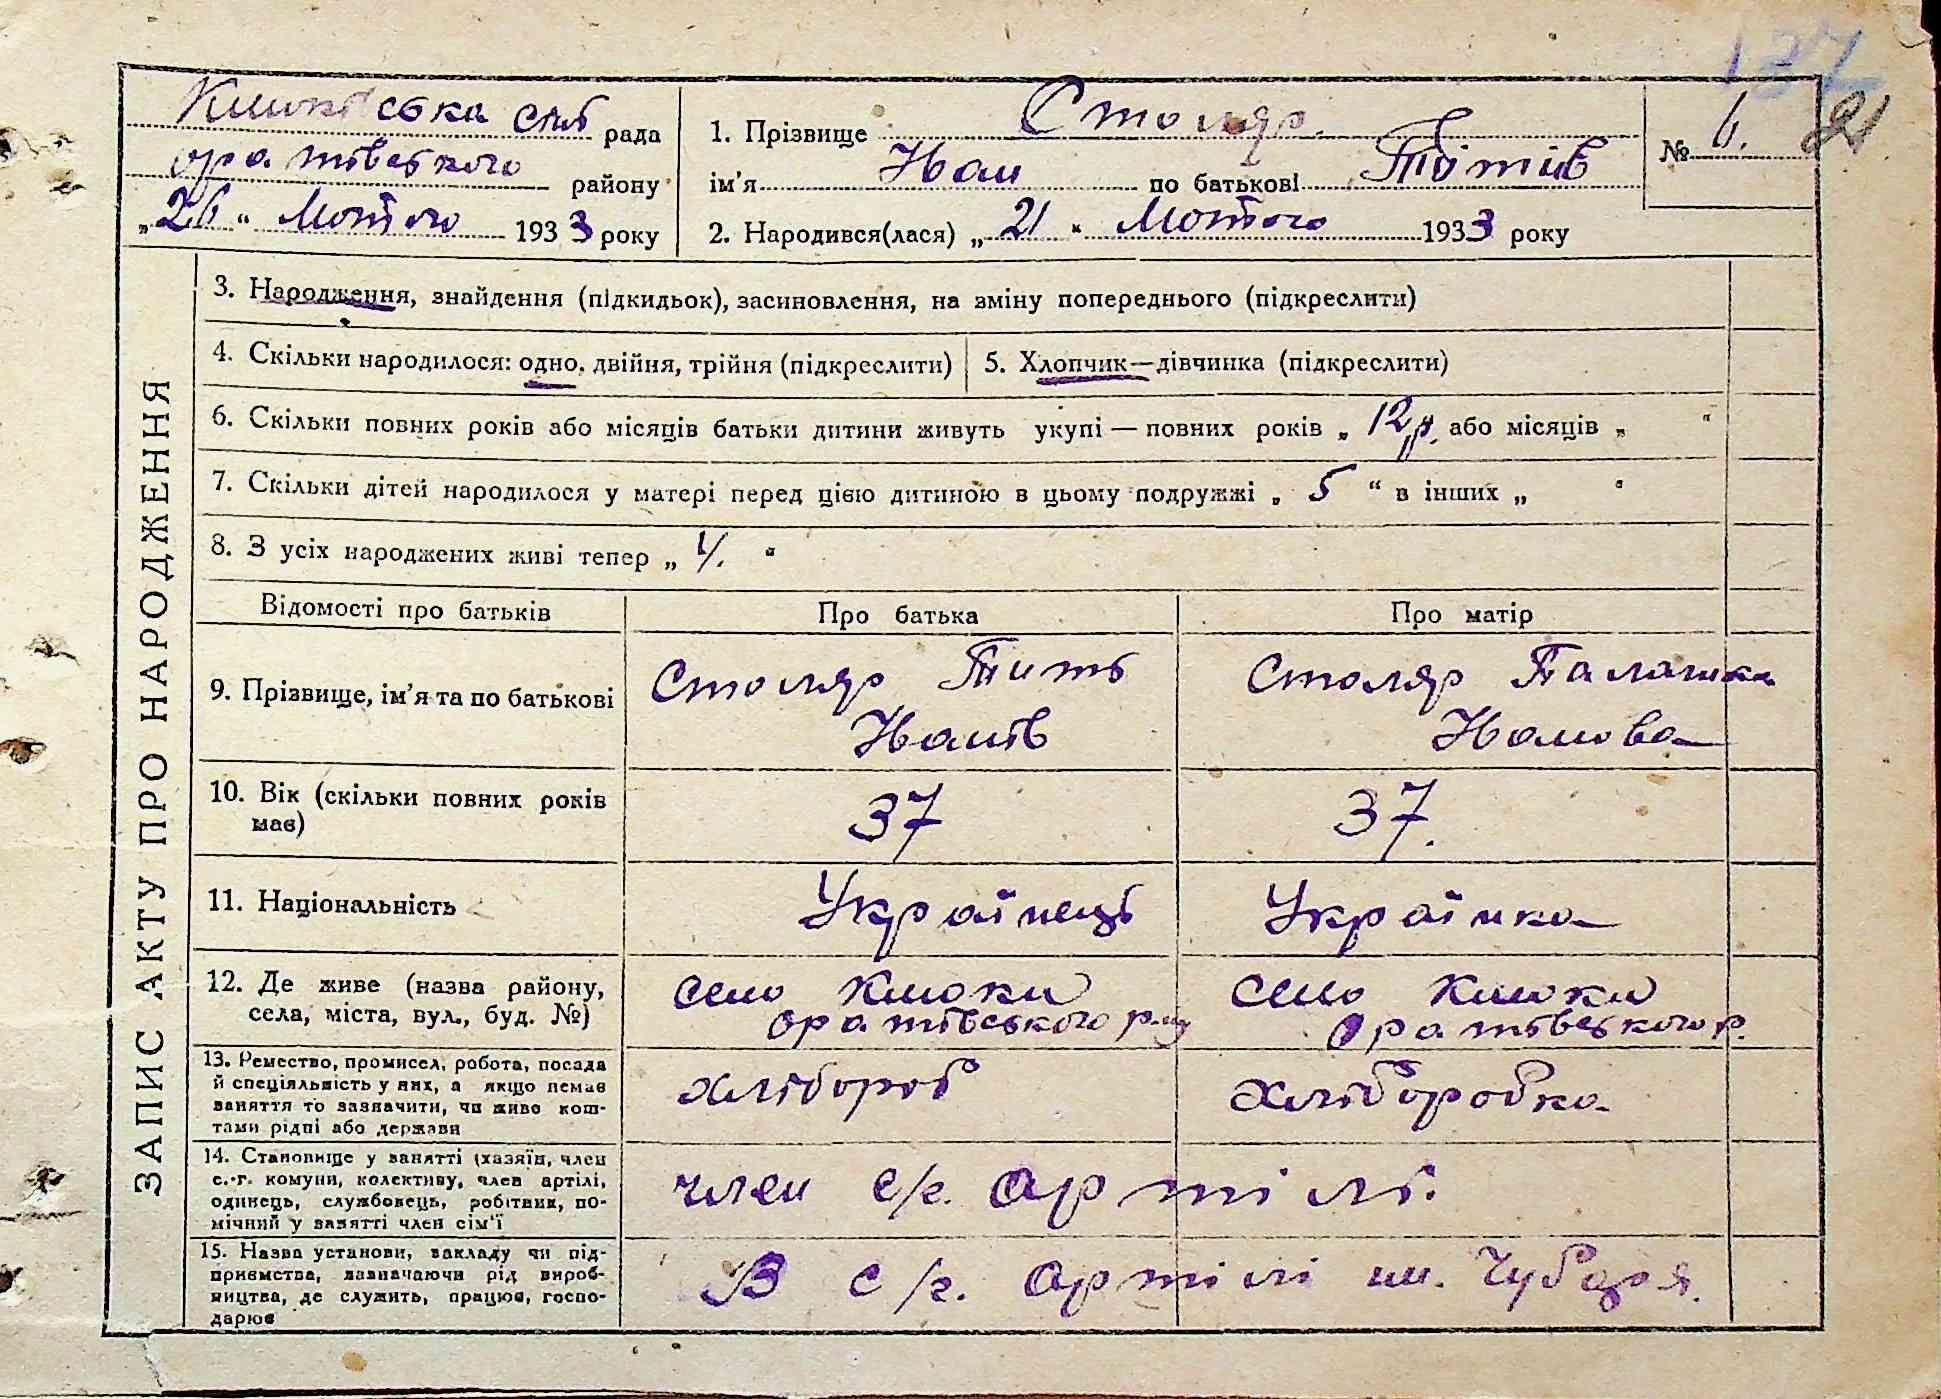 137
21
Клюківська сіл рада
оратівського району
„26“ Лютого 1933 року
1. Прізвище Столяр
ім'я Іван по батькові Тітів
№ 6.
2. Народився(лася) „21“ Лютого 1933 року
ЗАПИС АКТУ ПРО НАРОДЖЕННЯ
3. Народження, знайдення (підкидьок), засиновлення, на зміну попереднього (підкреслити)
4. Скільки народилося: одно, двійня, трійня (підкреслити)
5. Хлопчик—дівчинка (підкреслити)
6. Скільки повних років або місяців батьки дитини живуть укупі — повних років „12р. або місяців „ “
7. Скільки дітей народилося у матері перед цією дитиною в цьому подружжі „ 5 “ в інших „ “
8. З усіх народжених живі тепер „ “
Відомості про батьків
Про батька
Про матір
9. Прізвище, ім'я та по батькові
Столяр Тить
Іванів
Столяр Палажка
Іванова
10. Вік (скільки повних років
має)
37
37.
11. Національність
Українець
Українка
12. Де живе (назва району,
села, міста, вул., буд. №)
село Клюки
Оратівського р-ну
село Клюки
Оратівського р.
13. Ремество, промисел, робота, посада
й спеціяльність у них, а якщо немає
заняття то зазначити, чи живе кош-
тами рідні або держави
хлібороб
хліборобка
14. Становище у занятті (хазяїн, член
с.-г. комуни, колективу, член артілі,
одинець, службовець, робітник, по-
мічний у занятті член сім'ї
член с/г. артілі.
15. Назва установи, закладу чи під-
приємства, зазначаючи рід вироб-
ництва, де служить, працює, госпо-
дарює
В с/г. артілі им. Чубаря.